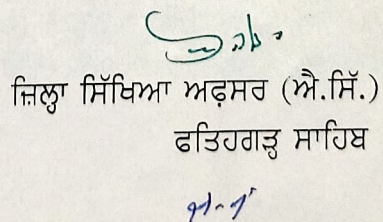 ਜ਼ਿਲ੍ਹਾ ਸਿੱਖਿਆ ਅਫ਼ਸਰ (ਐ.ਸਿੱ.)
ਫਤਿਹਗੜ੍ਹ ਸਾਹਿਬ